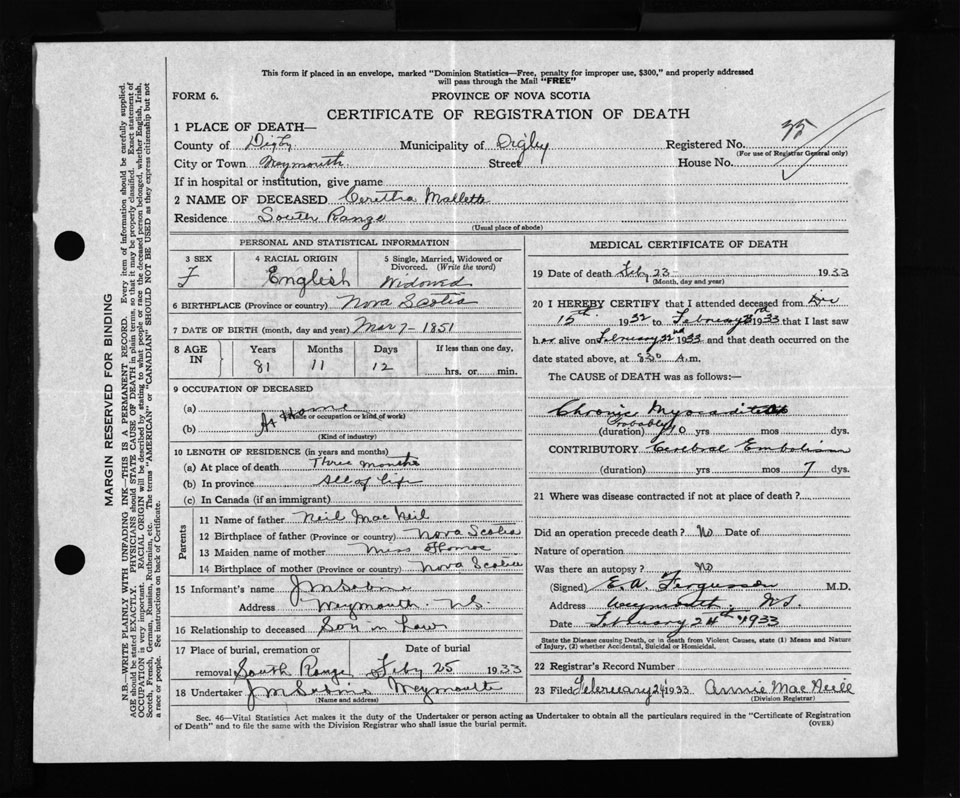 This form if placed in an envelope, marked "Dominion Statistics—Free, penalty for improper use, $300," and properly addressed
will pass through the Mail "FREE"
FORM 6. PROVINCE OF NOVA SCOTIA
CERTIFICATE OF REGISTRATION OF DEATH
1 PLACE OF DEATH—
County of Digby Municipality of Digby Registered No. 35
(For use of Registrar General only)
City or Town Weymouth Street House No.
If in hospital or institution, give name
2 NAME OF DECEASED Ceretha Mallett
Residence South Range
(Usual place of abode)
PERSONAL AND STATISTICAL INFORMATION
3 SEX 4 RACIAL ORIGIN 5 Single, Married, Widowed or
Divorced. (Write the word)
F English Widowed
6 BIRTHPLACE (Province or country) Nova Scotia
7 DATE OF BIRTH (month, day and year) Mar 7 - 1851
8 AGE IN Years Months Days If less than one day,
81 11 12 hrs. or min.
9 OCCUPATION OF DECEASED
(a) At Home
(Trade or occupation or kind of work)
(b)
(Kind of industry)
10 LENGTH OF RESIDENCE (in years and months)
(a) At place of death Three months
(b) In province All of life
(c) In Canada (if an immigrant)
Parents
11 Name of father Neil MacNeil
12 Birthplace of father (Province or country) Nova Scotia
13 Maiden name of mother Miss Thomas
14 Birthplace of mother (Province or country) Nova Scotia
15 Informant's name J M Sabine
Address Weymouth. N.S.
16 Relationship to deceased Son in Law
17 Place of burial, cremation or Date of burial
removal South Range Feby 25 1933
18 Undertaker J M Sabine Weymouth
(Name and address)
MEDICAL CERTIFICATE OF DEATH
19 Date of death Feby 23 - 1933
(Month, day and year)
20 I HEREBY CERTIFY that I attended deceased from Dec
15th 1932 to February 23rd 1933 that I last saw
her alive on February 22nd 1933 and that death occurred on the
date stated above, at 8 30 A.m.
The CAUSE of DEATH was as follows:—
Chronic Myocarditis
Probably
(duration) 10 yrs mos days.
CONTRIBUTORY Cerebral Embolism
(duration) yrs mos 7 dys.
21 Where was disease contracted if not at place of death?
Did an operation precede death? No Date of
Nature of operation
Was there an autopsy? No
(Signed) E.A. Ferguson M.D.
Address Weymouth. N.S.
Date February 24th 1933
State the Disease causing Death, or in death from Violent Causes, state (1) Means and Nature
of Injury, (2) whether Accidental, Suicidal or Homicidal.
22 Registrar's Record Number
23 Filed February 24 1933 Annie MacNeill
(Division Registrar)
Sec. 46—Vital Statistics Act makes it the duty of the Undertaker or person acting as Undertaker to obtain all the particulars required in the "Certificate of Registration
of Death" and to file the same with the Division Registrar who shall issue the burial permit. (OVER)
MARGIN RESERVED FOR BINDING
N.B.—WRITE PLAINLY WITH UNFADING INK—THIS IS A PERMANENT RECORD. Every item of information should be carefully supplied.
AGE should be stated EXACTLY. PHYSICIANS should STATE CAUSE OF DEATH in plain terms, so that it may be properly classified. Exact statement of
OCCUPATION is very important. RACIAL ORIGIN will be described by stating to what people or race the deceased person belonged, whether English, Irish,
Scotch, French, German, Russian, Ruthenian, etc. The terms "AMERICAN" or "CANADIAN" SHOULD NOT BE USED as they express citizenship but not
a race or people. See instructions on back of Certificate.